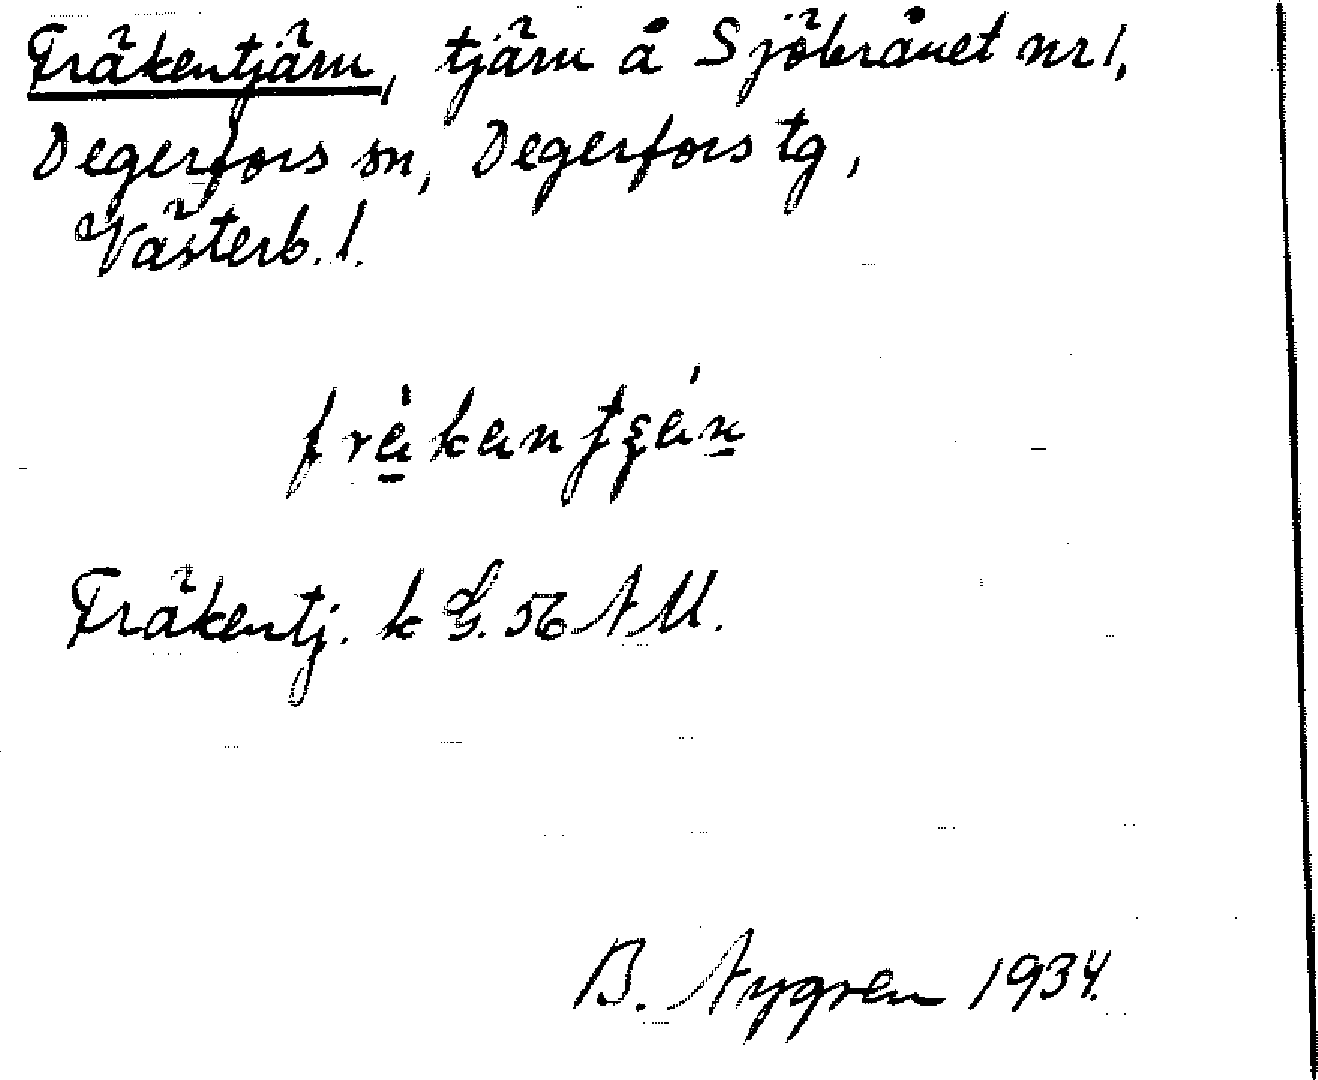 Fräkentjärn, tjärn å Sjöbrånet nr 1,
Degerfors sn, Degerfors tg,
Västerb. l.
Fräkentj. k G. 56 NM.
B. Nygren 1934.